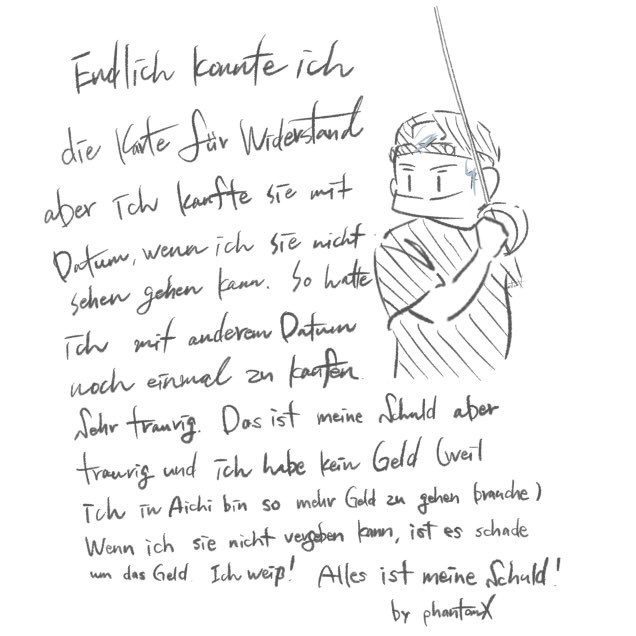 Endlich konnte ich
die Karte für Widerstand
aber ich kaufte sie mit
Datum, wenn ich sie nicht
sehen gehen kann. So hatte
ich mit anderem Datum
noch einmal zu kaufen.
Sehr traurig. Das ist meine Schuld aber
traurig und ich habe kein Geld (weil
ich in Aichi bin so mehr Geld zu gehen brauche)
Wenn ich sie nicht vergeben kann, ist es schade
um das Geld. Ich weiß! Alles ist meine Schuld!
by phantomX